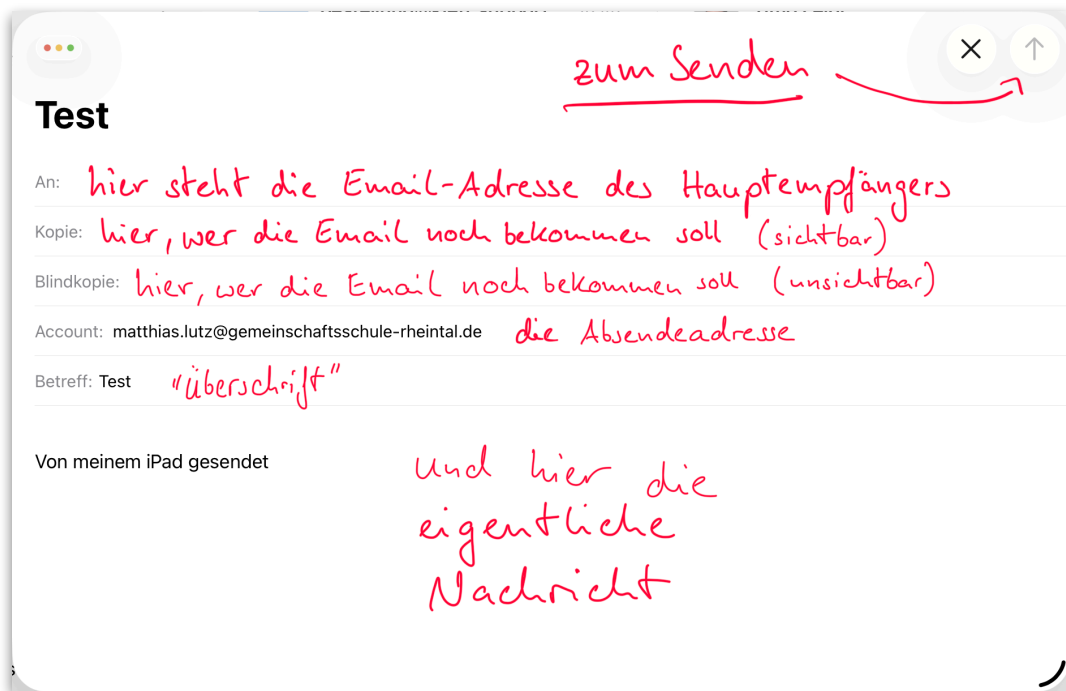 zum Senden
Test
An: hier steht die Email-Adresse des Hauptempfängers
Kopie: hier, wer die Email noch bekommen soll (sichtbar)
Blindkopie: hier, wer die Email noch bekommen soll (unsichtbar)
Account: matthias.lutz@gemeinschaftsschule-rheintal.de die Absendeadresse
Betreff: Test "überschrift"
Von meinem iPad gesendet
und hier die
eigentliche
Nachricht